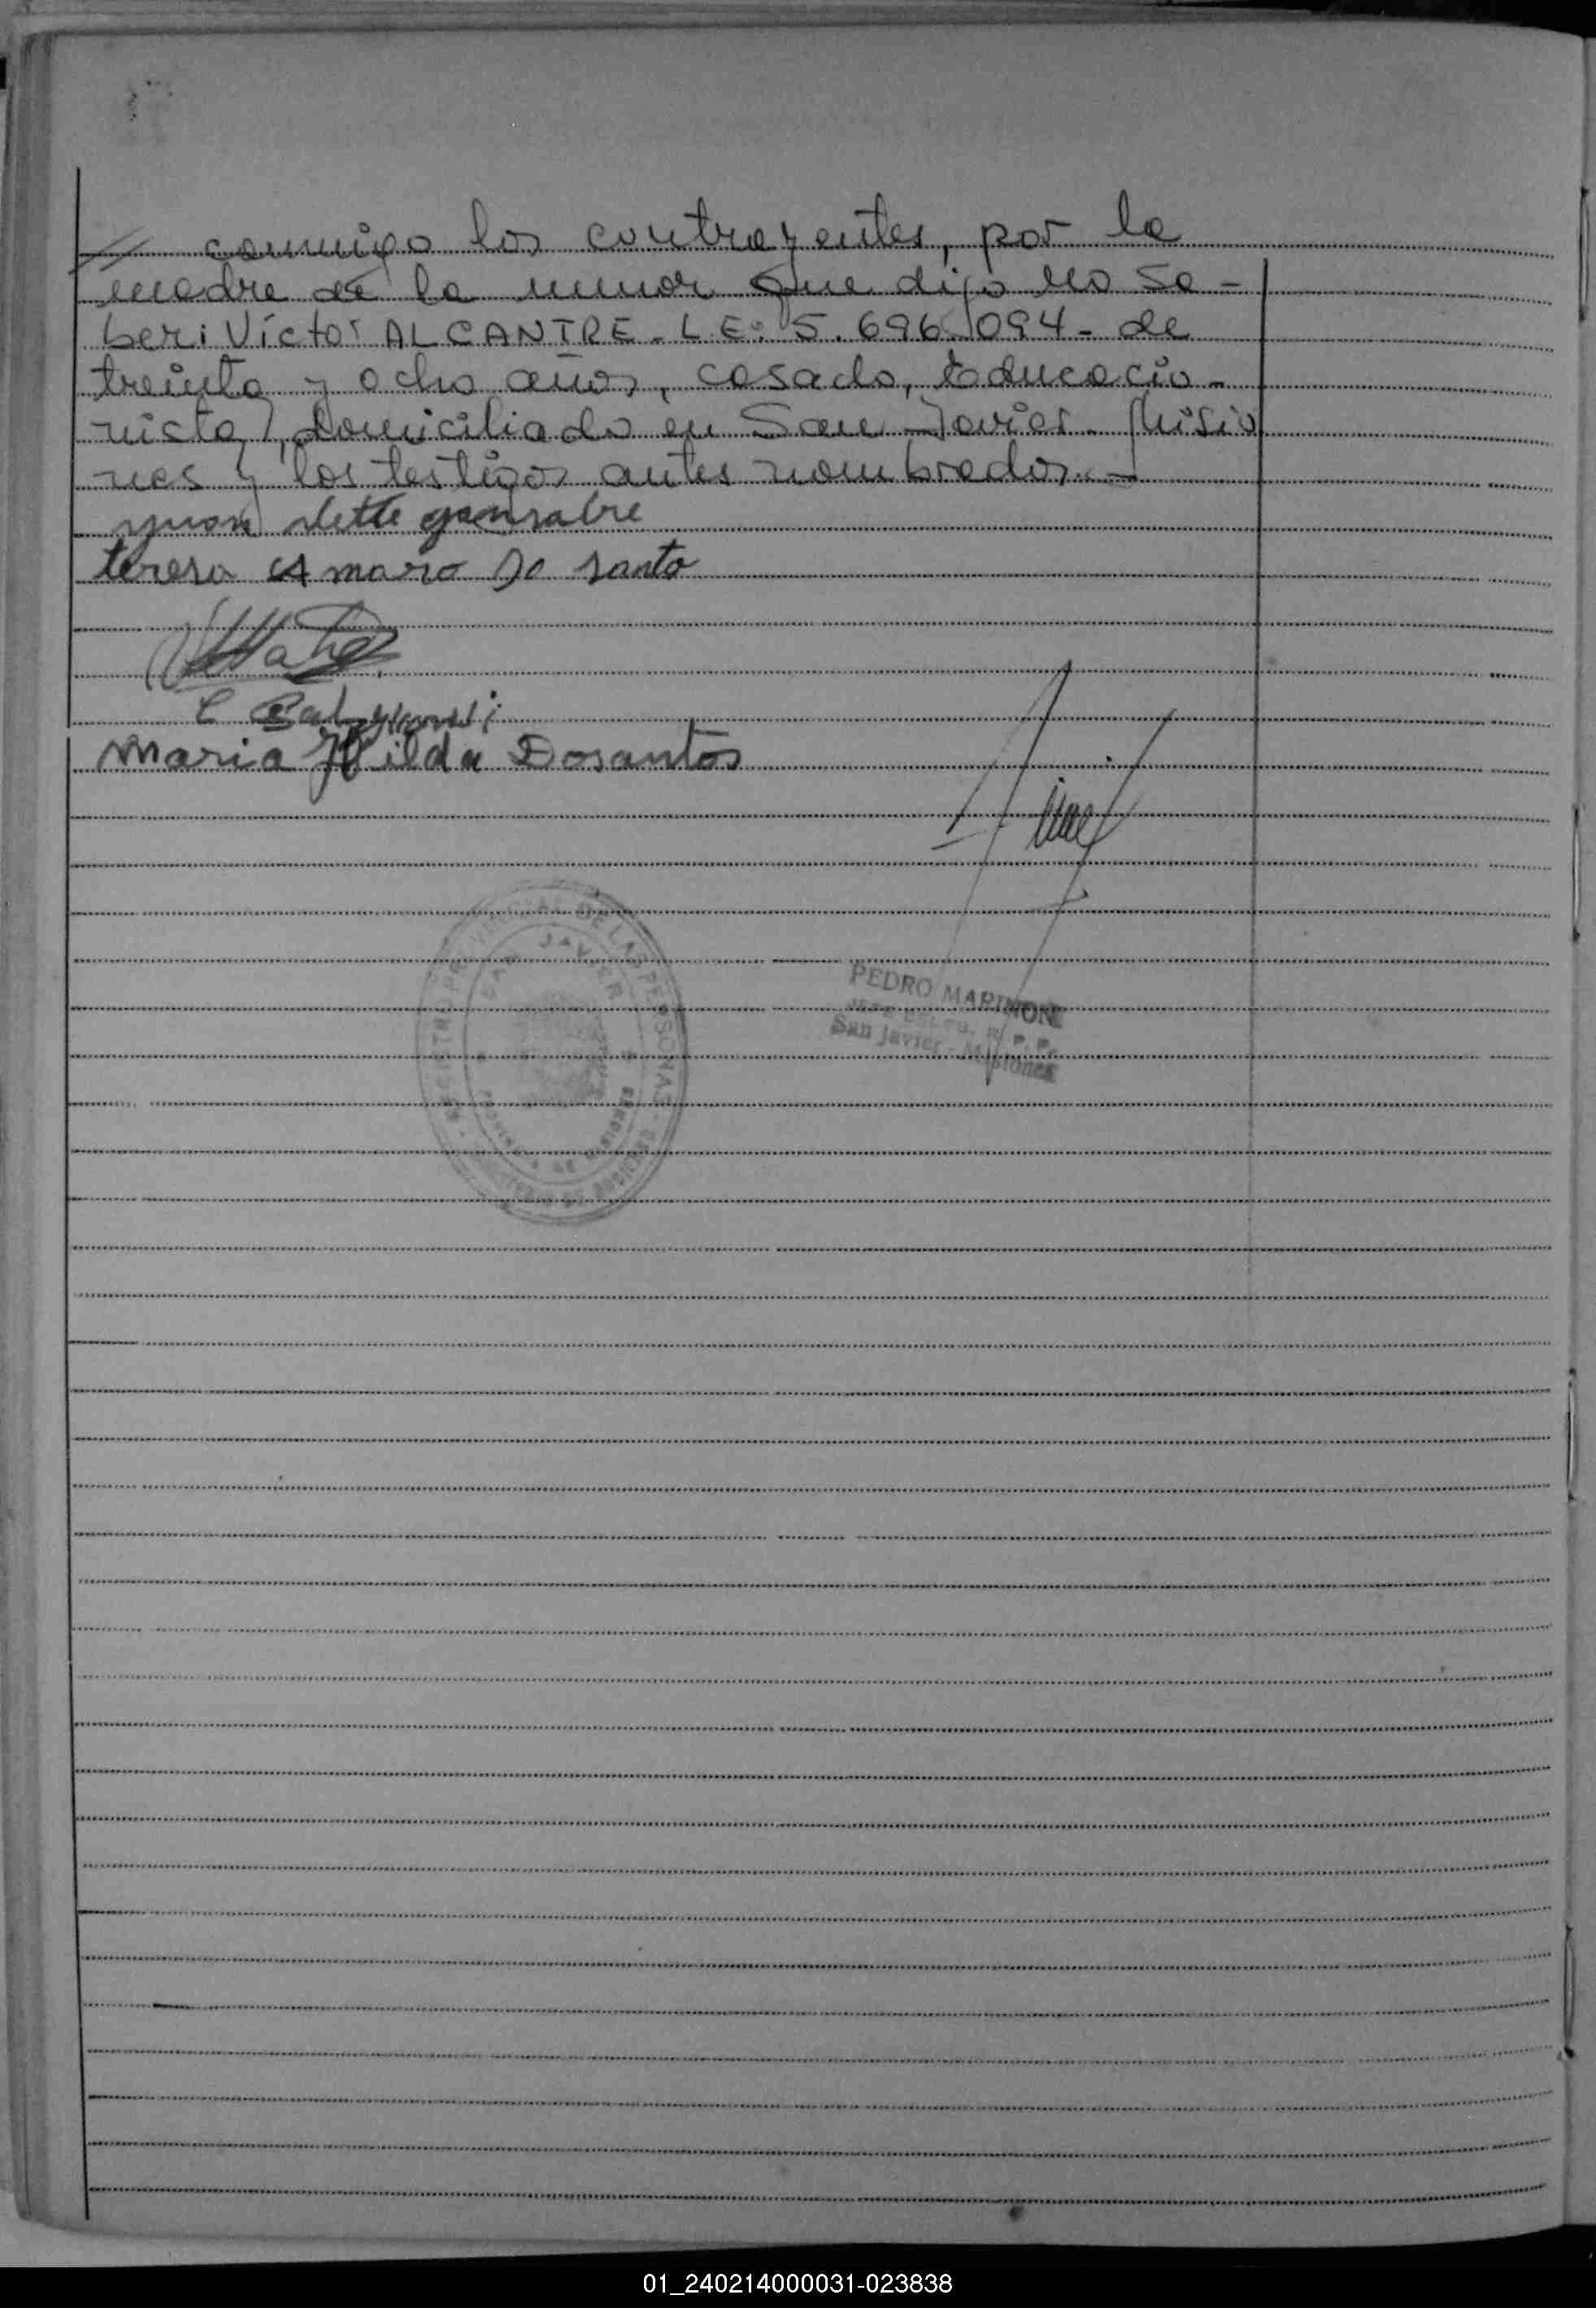 // conmigo los contrayentes, por la
madre de la menor que dijo no sa-
ber: Víctor ALCANTRE - L.E: 5.696.094 - de
treinta y ocho años, casado, Educacio-
nista, domiciliado en San Javier - Misio
nes y los testigos antes nombrados.-
teresa Amaro Do santo
Maria Hilda Dosantos
REGISTRO PROVINCIAL DE LAS PERSONAS
SAN JAVIER
PROVINCIA DE MISIONES
PEDRO MARINONI
San Javier - Misiones
01_240214000031-023838